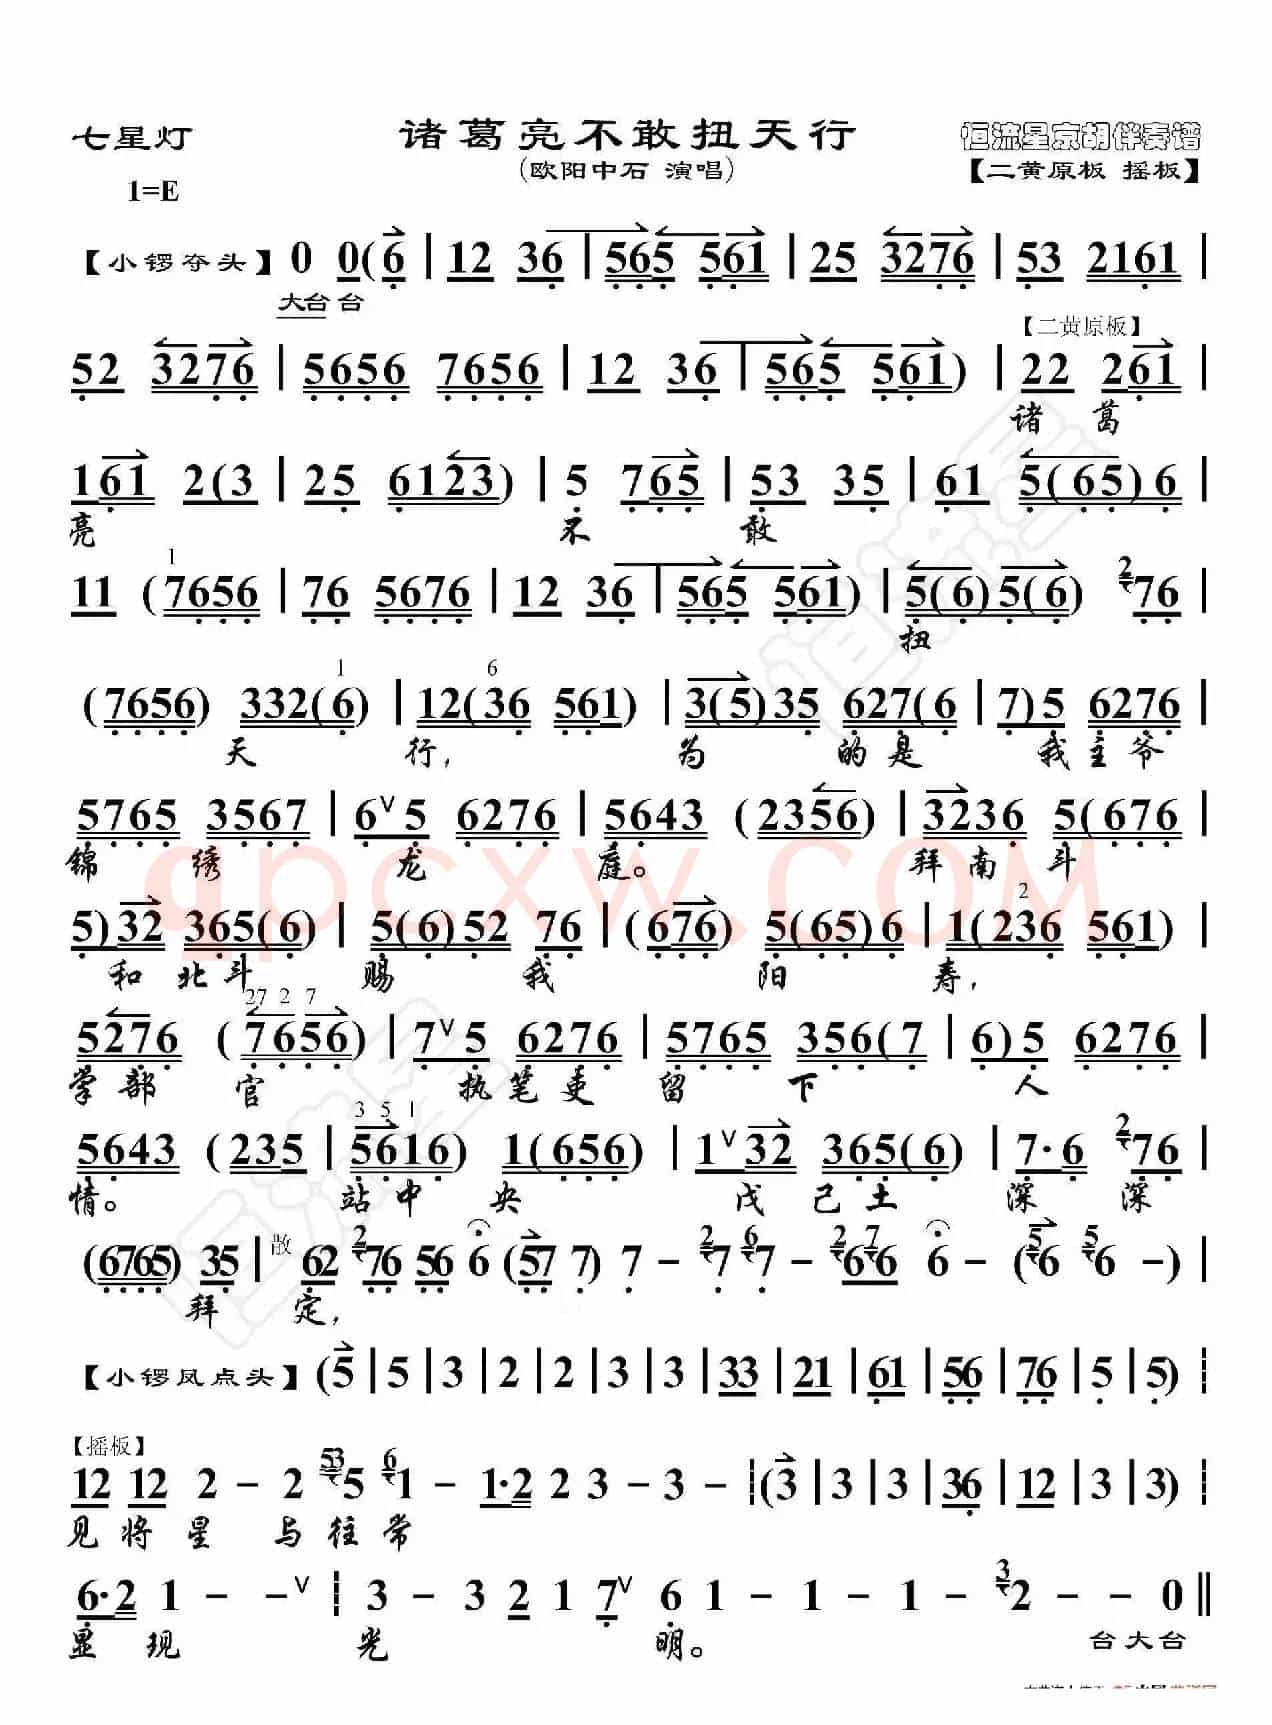 七星灯 诸葛亮不敢扭天行 恒流星京胡伴奏谱
(欧阳中石 演唱) 【二黄原板 摇板】
1=E
【小锣夺头】 0 0(6 | 12 36 | 565 561 | 25 3276 | 53 2161 |
大台台
【二黄原板】
52 3276 | 5656 7656 | 12 36 | 565 561) | 22 261 |
诸 葛
161 2(3 | 25 6123) | 5 765 | 53 35 | 61 5(65)6 |
亮 不 敢
1
11 (7656 | 76 5676 | 12 36 | 565 561) | 5(6)5(6) 2 76 |
扭
1 6
(7656) 332(6) | 12(36 561) | 3(5)35 627(6 | 7)5 6276 |
天 行, 为 的是 我主爷
5765 3567 | 6∨5 6276 | 5643 (2356) | 3236 5(676 |
锦 绣 龙 庭。 拜南斗
qpcxw.com
2
5)32 365(6) | 5(6)52 76 | (676) 5(65)6 | 1(236 561) |
和北斗 赐 我 阳 寿,
27 2 7
5276 (7656) | 7∨5 6276 | 5765 356(7 | 6)5 6276 |
掌部 官 执笔吏 留 下 人
3 5 1
5643 (235 | 5616) 1(656) | 1∨32 365(6) | 7·6 2 76 |
情。 站中 央 戊己土 深 深
(6765) 35 | 散 62 2 76 56 6 (57 7) 7 - 2 7 6 7 - 2 6 7 6 6 - (5 6 5 6 -) |
拜 定,
【小锣凤点头】 (5 | 5 | 3 | 2 | 2 | 3 | 3 | 33 | 21 | 61 | 56 | 76 | 5 | 5) ┊
【摇板】
12 12 2 - 2 53 5 6 1 - 1·2 2 3 - 3 - ┊ (3 | 3 | 3 | 36 | 12 | 3 | 3) |
见将星 与往常
6·2 1 - -∨ ┊ 3 - 3 2 1 7∨ 6 1 - 1 - 1 - 3 2 - 0 ‖
显 现 光 明。 台大台
恒流星
恒流星